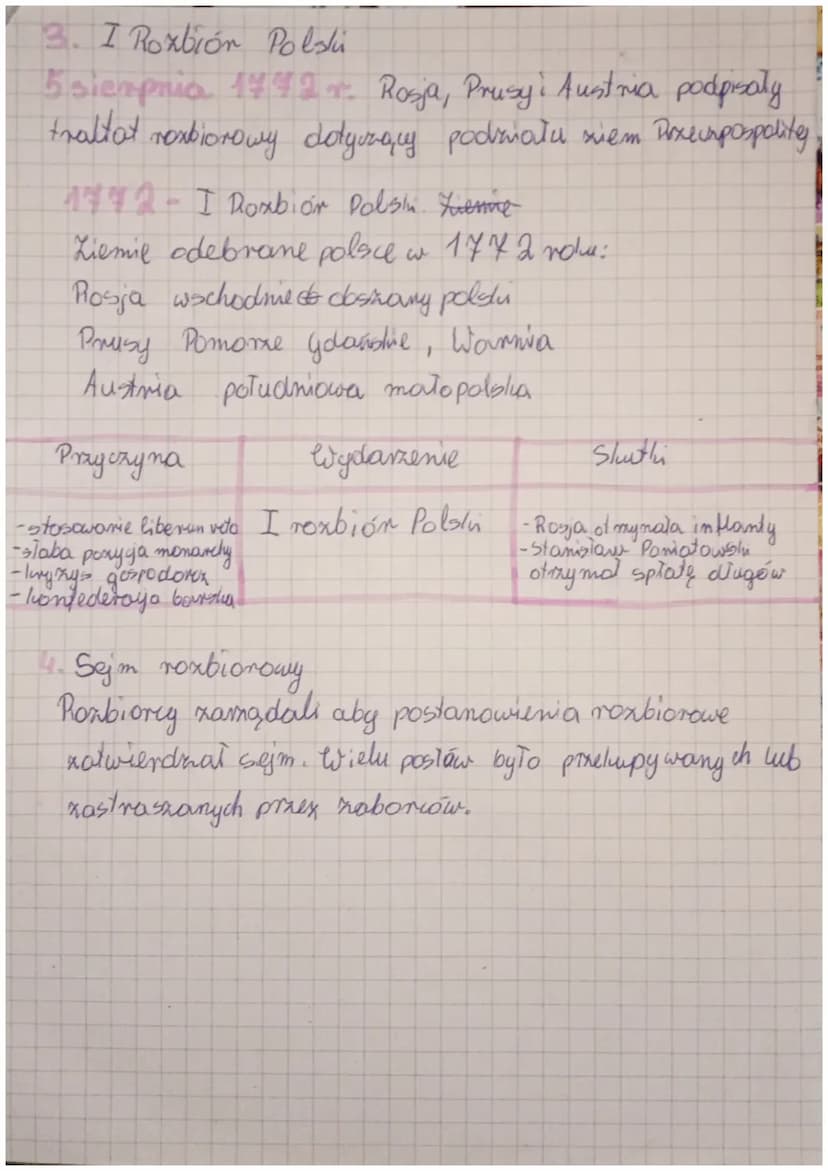 3. I Rozbiór Polski
5 sierpnia 1772 r. Rosja, Prusy i Austria podpisały
traktat rozbiorowy dotyczący podziału ziem Rzeczypospolitej
1772 - I Rozbiór Polski. Ziemie
Ziemie odebrane polsce w 1772 roku:
Rosja wschodnie obszary polski
Prusy Pomorze gdańskie, Warmia
Austria południowa małopolska
Przyczyna Wydarzenie Skutki
-stosowanie liberum veto
-słaba pozycja monarchy
-kryzys gospodarcz
-konfederacja barska
I rozbiór Polski
-Rosja otrzymała inflanty
-Stanisław Poniatowski
otrzymał spłatę długów
4. Sejm rozbiorowy
Rozbiorcy zarządali aby postanowienia rozbiorowe
zatwierdzał sejm. Wielu posłów było przekupywanych lub
zastraszanych przez zaborców.